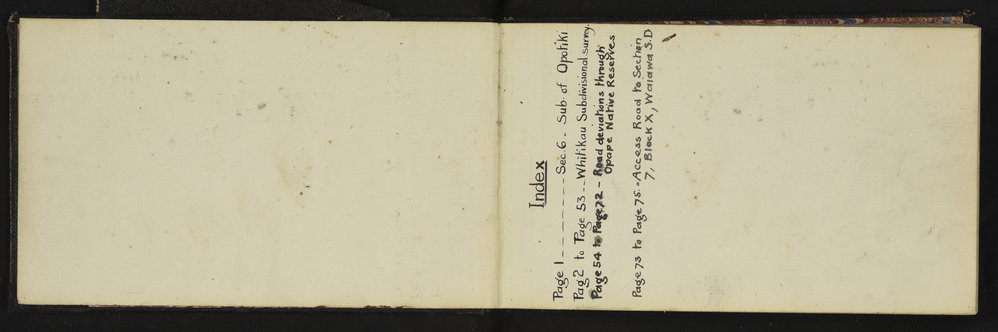 Index
Page 1 _ _ _ _ _ _ _ Sec. 6. Sub. of Opotiki
Pag 2 to Page 53 _ _ Whitikau Subdivisional survey.
Page 54 to Page 72 - Road deviations through
Opape Native Reserves
Page 73 to Page 75. - Access Road to Section
7, Block X, Waiawa S.D